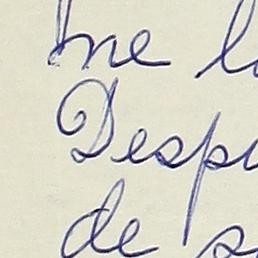 me l
Desp
de s